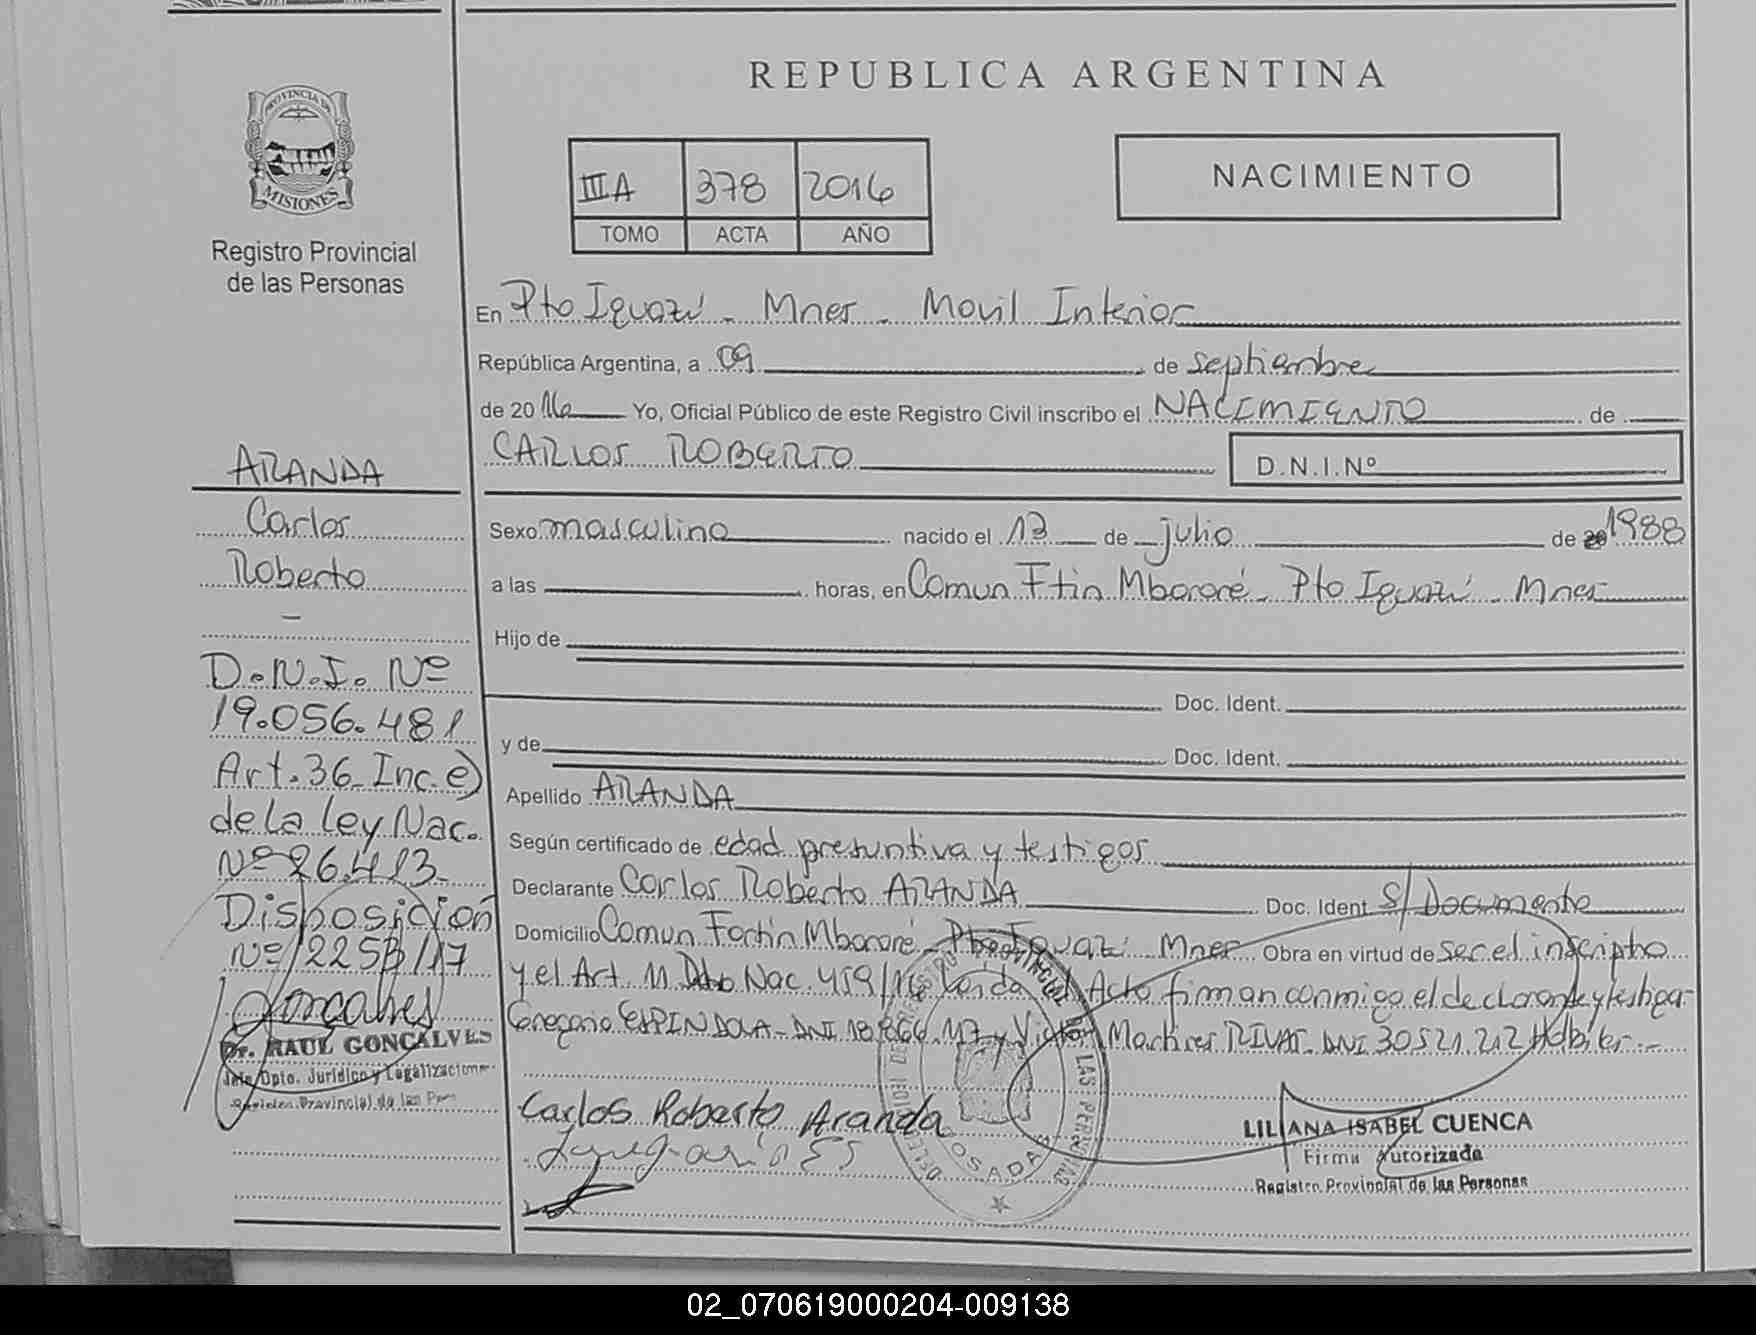 REPUBLICA ARGENTINA
PROVINCIA DE
MISIONES
Registro Provincial
de las Personas
III A 378 2016
TOMO ACTA AÑO
NACIMIENTO
En Pto Iguazú - Mnes - Movil Interior
República Argentina, a 09 de septiembre
de 20 16 Yo, Oficial Público de este Registro Civil inscribo el NACIMIENTO de
CARLOS ROBERTO D.N.I.Nº
Sexo masculino nacido el 13 de julio de 20 1988
a las horas, en Comun Ftin Mbororé - Pto Iguazú - Mnes
Hijo de
Doc. Ident.
y de Doc. Ident.
Apellido ARANDA
Según certificado de edad presuntiva y testigos
Declarante Carlos Roberto ARANDA Doc. Ident s/ Documento
Domicilio Comun Fortin Mbororé - Pto Iguazú Mnes Obra en virtud de ser el inscripto
y el Art. 11 Dto Nac. 459/ Leida Acta firman conmigo el declarante y testigos
Gregorio ESPINDOLA - DNI 18.866.117 y Victor Martires RIVAS - DNI 30521.212 Habiles.-
Carlos Roberto Aranda
LILIANA ISABEL CUENCA
Firma Autorizada
Registro Provincial de las Personas
ARANDA
Carlos
Roberto
-
D.N.I. Nº
19.056.481
Art. 36 Inc. e)
de la ley Nac.
Nº 26.413
Disposicion
Nº 2253/17
Goncalves
Dr. RAUL GONCALVES
Jefe Dpto. Jurídico y Legalizaciones
Registro Provincial de las Pers
POSADAS
02_070619000204-009138